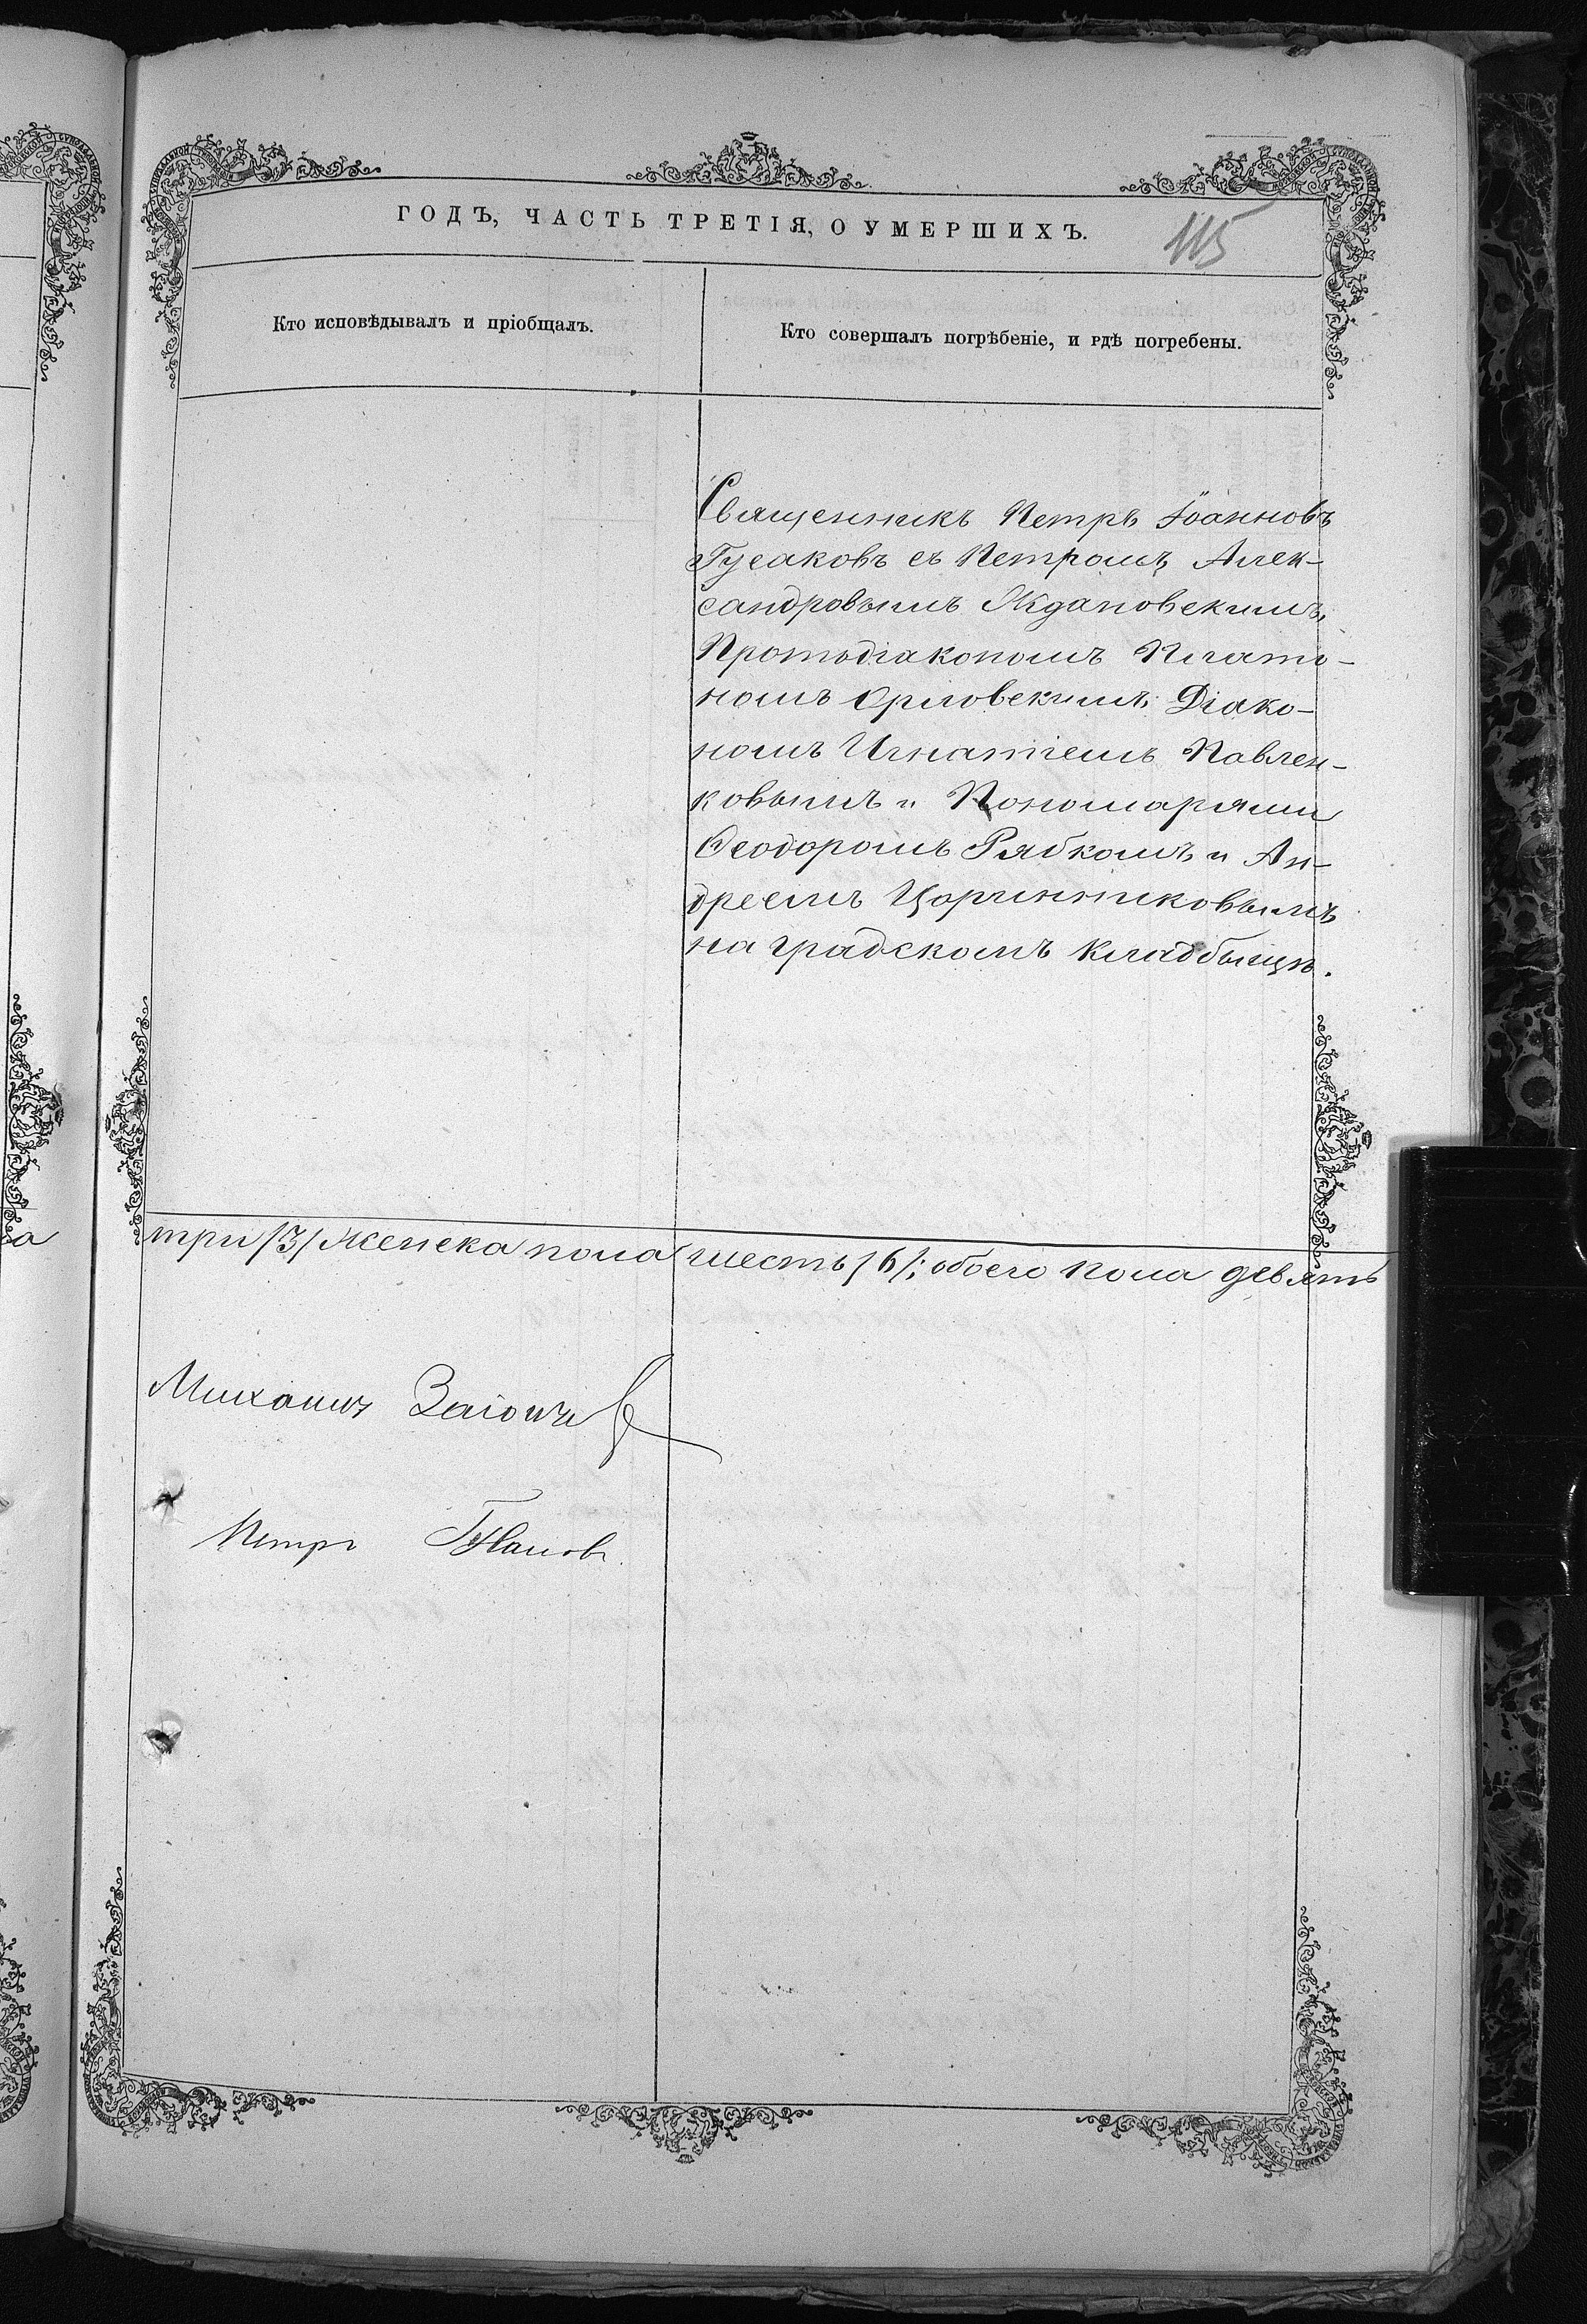 ГОДЪ, ЧАСТЬ ТРЕТІЯ, О УМЕРШИХЪ.
115
Кто исповѣдывалъ и пріобщалъ.
Кто совершалъ погрѣбеніе, и гдѣ погребены.
Священникъ Петръ Іоанновъ
Гусаковъ съ Петромъ Алек-
сандровымъ Ждановскимъ,
Протодіакономъ Плато-
номъ Орловскимъ, Діако-
номъ Игнатіемъ Павлен-
ковымъ и Пономарями
Ѳеодоромъ Рябкомъ и Ан-
дреемъ Цоринниковымъ
на градскомъ кладбыщѣ.
а
три /3/ женска пола шесть /6/; обоего пола девять
Михаилъ
Петръ